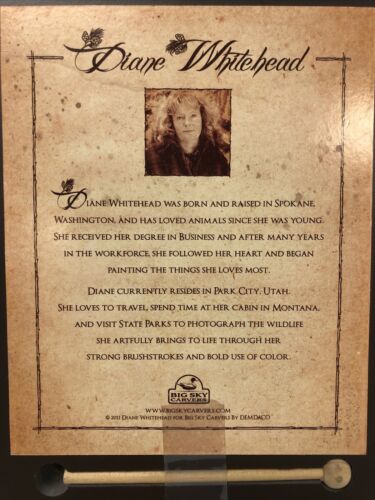 Diane Whitehead
Diane Whitehead was born and raised in Spokane,
Washington, and has loved animals since she was young.
She received her degree in Business and after many years
in the workforce, she followed her heart and began
painting the things she loves most.
Diane currently resides in Park City, Utah.
She loves to travel, spend time at her cabin in Montana,
and visit State Parks to photograph the wildlife
she artfully brings to life through her
strong brushstrokes and bold use of color.
BIG SKY
CARVERS
www.bigskycarvers.com
© 2011 Diane Whitehead for Big Sky Carvers by DEMDACO